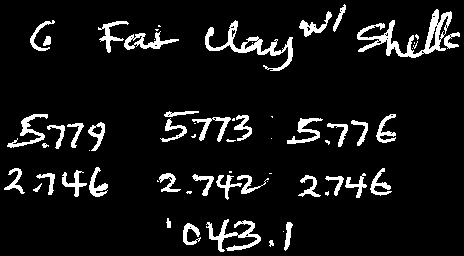 6 Fat Clay w/ Shells
5.779 5.773 5.776
2.746 2.742 2.746
1043.1